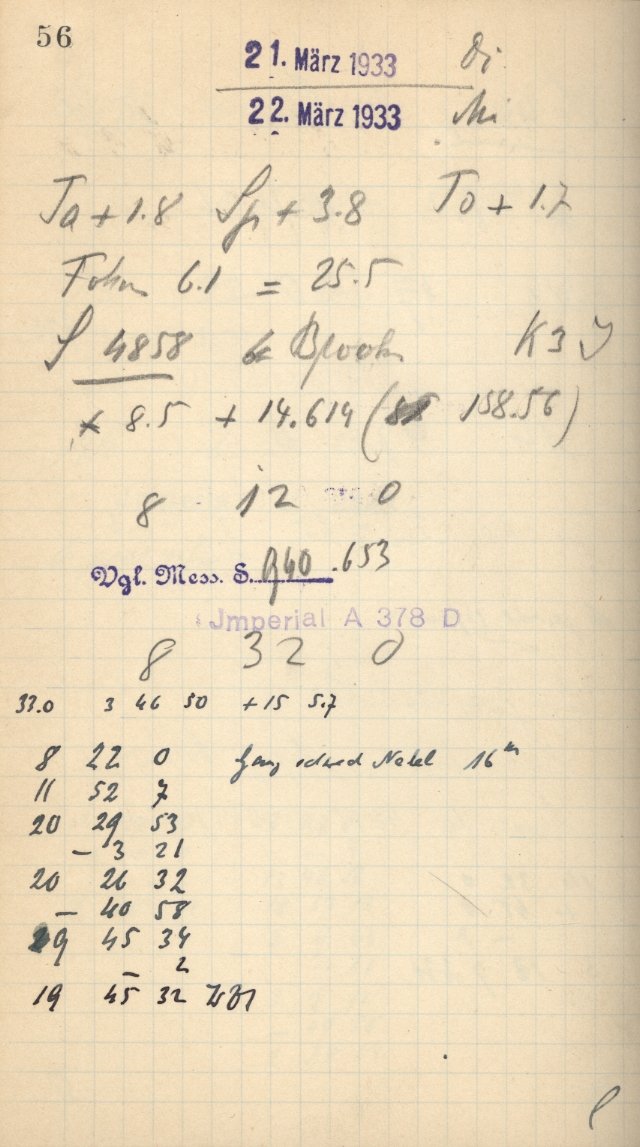 56
21. März 1933 Di
22. März 1933 Mi
Ta + 1.8 Sp + 3.8 To + 1.7
Fokus 6.1 = 25.5
S 4858 Brooks K 3 J
8.5 + 14.614 ( 158.56)
8 12 0
Vgl. Mess. S. 640 .653
Jmperial A 378 D
8 32 0
33.0 3 46 50 +15 5.7
8 22 0 Ganz schwach Nebel 16ᵐ
11 52 7
20 29 53
- 3 21
20 26 32
- 40 58
19 45 34
- 2
19 45 32